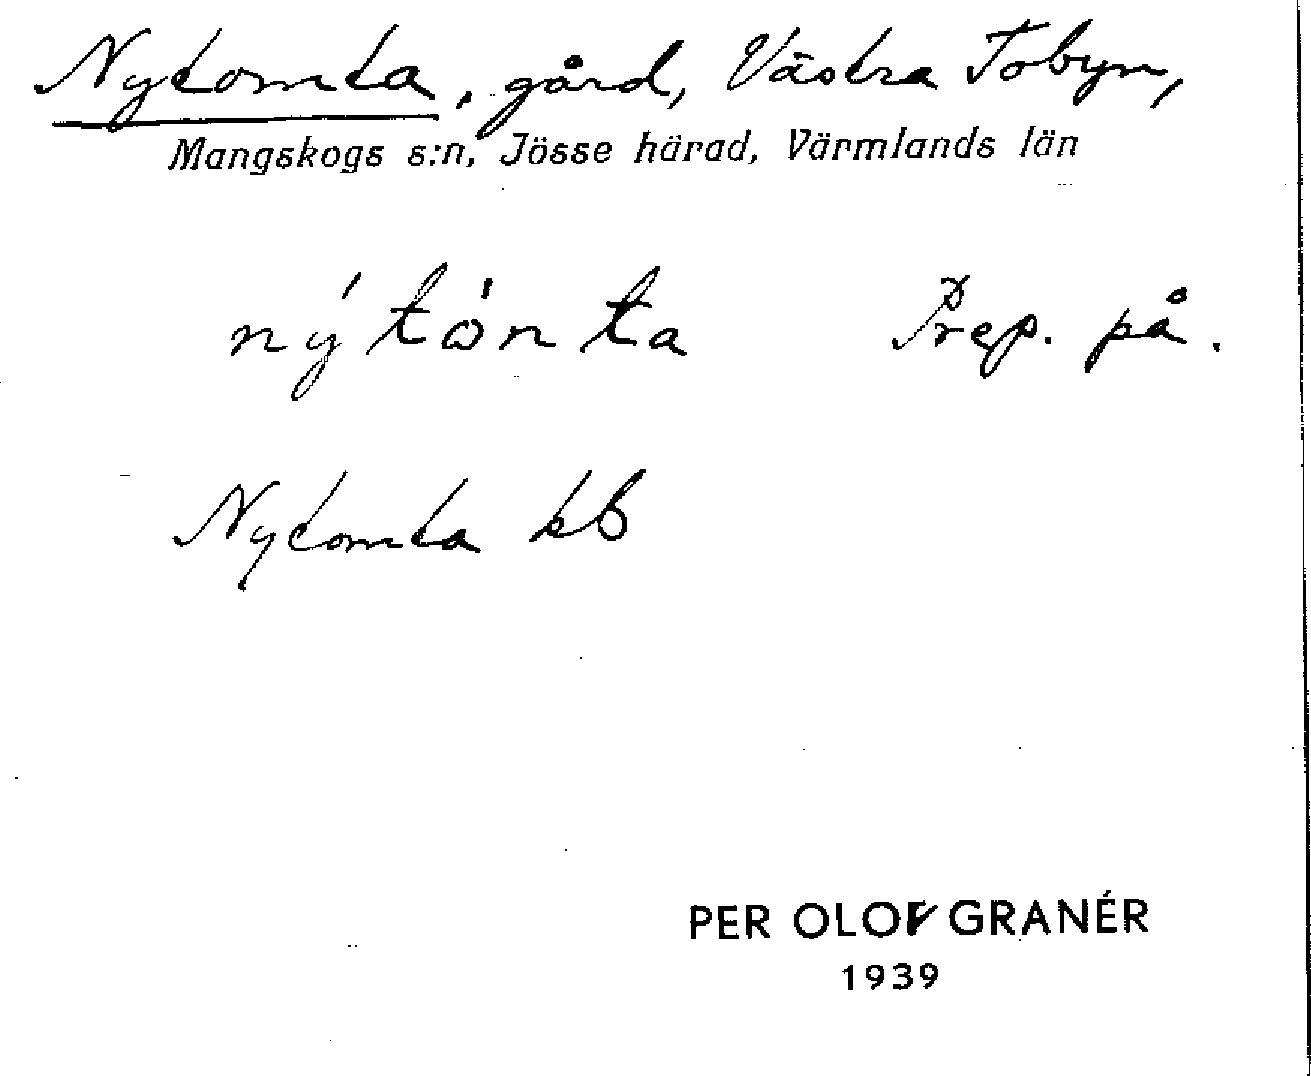 Nytomta, gård, Västra Tobyn,
Mangskogs s:n, Jösse härad, Värmlands län
nýtònta Prep. på.
Nytomta kb
PER OLOF GRANÉR
1939